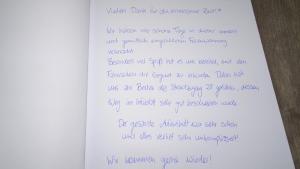 Vielen Dank für die erholsame Zeit!
Wir haben vier schöne Tage in dieser
und gemütlich eingerichteten Ferienwohnung
verbracht.
Besonders viel Spaß hat es uns bereitet, mit den
Fahrrädern die Gegend zu erkunden. Dabei hat
uns der Besitz die gefallen, dessen
Weg im Infoblatt sehr gut beschrieben wurde.
Der gesamte Aufenthalt war sehr schön
und alles verlief sehr unkompliziert!
Wir kommen gerne wieder!